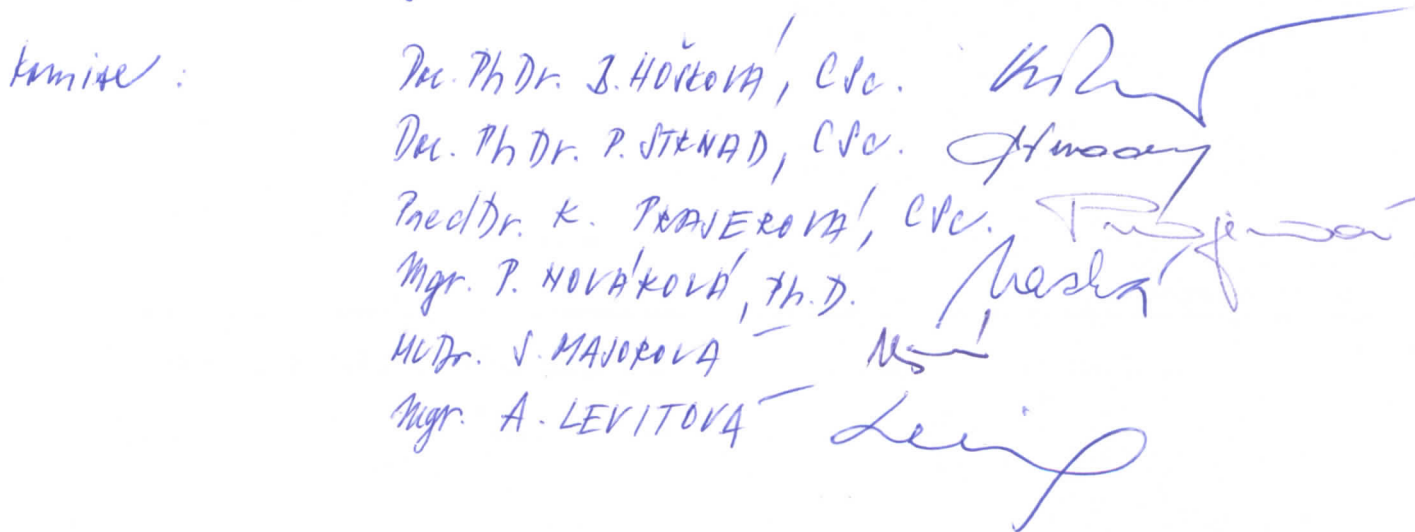 Komise :
Doc. PhDr. B. HOŠKOVÁ, CSc.
Doc. PhDr. P. STRNAD, CSc.
PaedDr. K. PRAJEROVÁ, CSc.
Mgr. P. NOVÁKOVÁ, Ph.D.
MUDr. S. MAJOROVÁ
Mgr. A. LEVITOVÁ